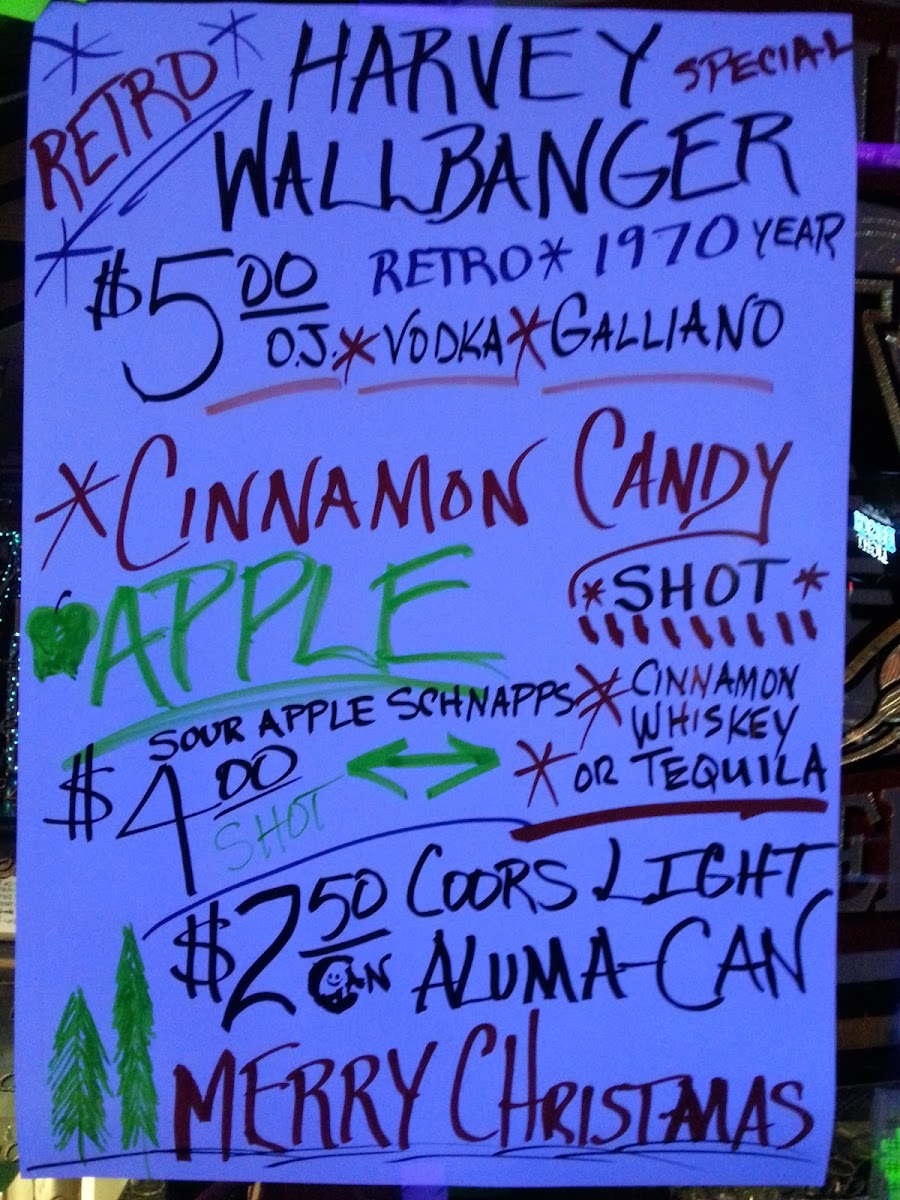 RETRO HARVEY SPECIAL
WALLBANGER
$5.00 RETRO * 1970 YEAR
O.J. * VODKA * GALLIANO
* CINNAMON CANDY
APPLE * SHOT *
SOUR APPLE SCHNAPPS * CINNAMON
WHISKEY
$4.00 SHOT * OR TEQUILA
$2.50 COORS LIGHT
CAN ALUMA-CAN
MERRY CHRISTMAS